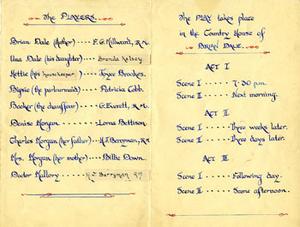 The PLAYERS.
Brian Dale (Author) ---- F.G. Millward, R.N.
Una Dale (his daughter) ---- Brenda Kelsey
Nettie (his housekeeper) ---- Joyce Brookes.
Bipsie (the parlourmaid) --- Patricia Cobb.
Booker (the chauffeur) ---- G. Everett, R.N.
Denise Morgan ---- Lorna Bettison.
Charles Morgan (her father) -- R.J. Berryman, R.N.
Mrs. Morgan (her mother) -- Billie Down.
Doctor Mallory ---- R.J. Berryman R.N.
The PLAY takes place
in the Country House of
BRIAN DALE.
ACT I
Scene I ---- 7-30 p.m.
Scene II ---- Next morning.
ACT II
Scene I ---- Three weeks later.
Scene II ---- Three days later.
ACT III
Scene I ----- Following day.
Scene II ---- Same afternoon.